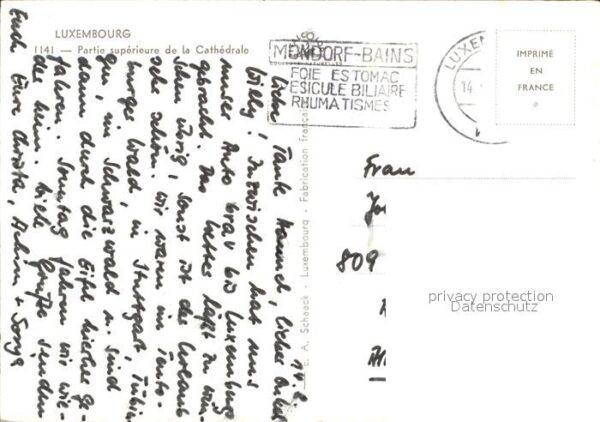 LUXEMBOURG
1141 — Partie supérieure de la Cathédrale
MONDORF-BAINS
FOIE ESTOMAC
VESICULE BILIAIRE
RHUMATISMES
LUXEM
14.
IMPRIMÉ
EN
FRANCE
E. A. Schaack - Luxembourg - Fabrication française
14.8.
Liebe Tante Annel, lieber Onkel
Willy! Inzwischen hat uns
unser Auto brav bis Luxemburg
gebracht. Das Wetter läßt zu wün-
schen übrig, sonst ist der Urlaub
sehr schön. Wir waren im Teuto-
burger Wald, in Stuttgart, Tübin-
gen, im Schwarzwald u. sind
dann durch die Eifel hierher ge-
fahren. Sonntag fahren wir wie-
der heim. Viele Grüße senden
Euch Eure Christa, Achim + Sonja
Frau
809
privacy protection
Datenschutz